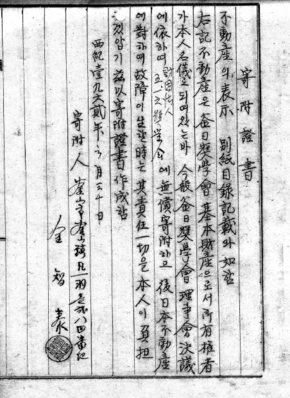 寄附證書
不動産의 表示 別紙目錄記載와 如함
右記不動産은 釜日奬學會 基本財産으로서 所有權者
가 本人名儀로 되여있는바 今般 釜日奬學會 理事會 決議
에 依하여 財團法人 五·一六奬學會에 無償寄附하고 後日 本不動産
에 對하여 故障이 生할時는 其責任 一切을 本人이 負擔
하기 玆以 寄附證書 作成함
西紀 壹九六貳年 六月 三十日
寄附人
金智泰